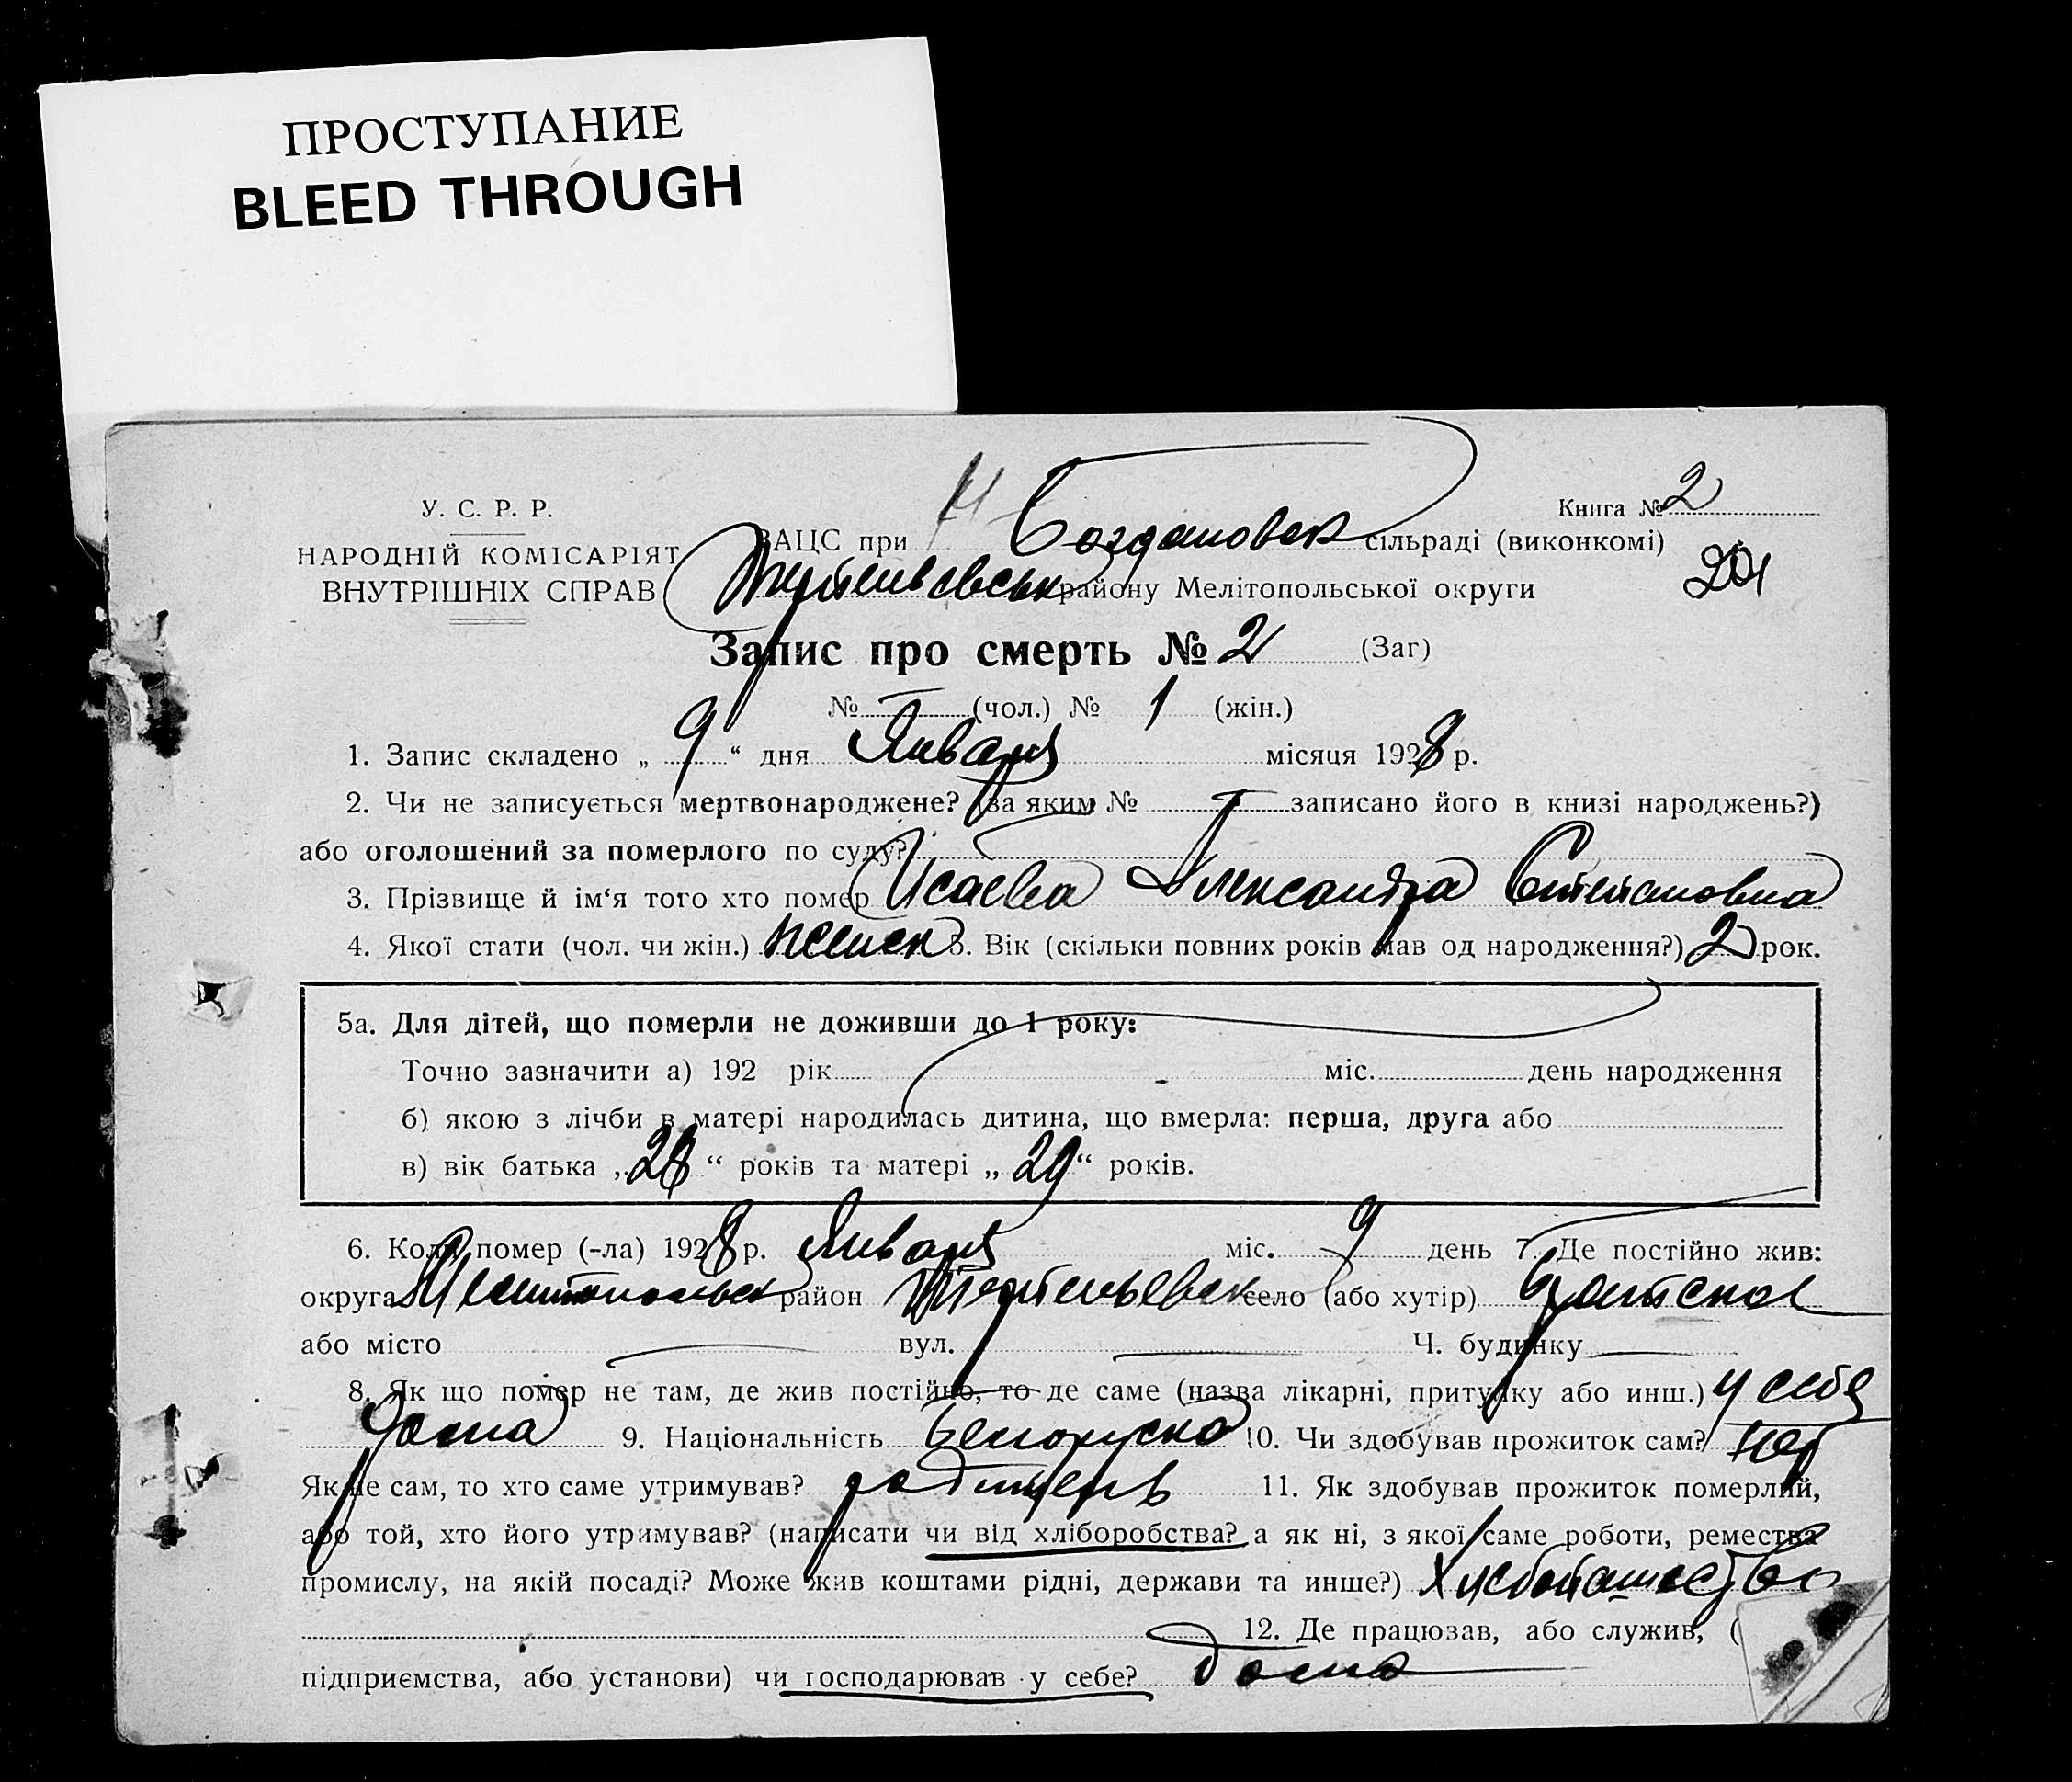 ПРОСТУПАНИЕ
BLEED THROUGH
У. С. Р. Р.
НАРОДНІЙ КОМІСАРІЯТ
ВНУТРІШНІХ СПРАВ
Книга № 2
ЗАЦС при Богдановск сільраді (виконкомі)
201
району Мелітопольської округи
Запис про смерть № 2 (Заг)
№ (чол.) № 1 (жін.)
1. Запис складено „ 9 “ дня Января місяця 1928 р.
2. Чи не записується мертвонароджене? (за яким № записано його в книзі народжень?)
або оголошений за померлого по суду?
3. Прізвище й ім‘я того хто помер Исаева Александра Степановна
4. Якої стати (чол. чи жін.) женск 5. Вік (скільки повних років мав од народження?) 2 рок.
5а. Для дітей, що померли не доживши до 1 року:
Точно зазначити а) 192 рік міс. день народження
б) якою з лічби в матері народилась дитина, що вмерла: перша, друга або
в) вік батька „ 28 “ років та матері „ 29 “ років.
6. Коли помер (-ла) 1928 р. Января міс. 9 день 7. Де постійно жив:
округа Мелитопольск район село (або хутір)
або місто вул. Ч. будинку
8. Як що помер не там, де жив постійно, то де саме (назва лікарні, притулку або инш.) у себя
дома 9. Національність белоруска 10. Чи здобував прожиток сам? нет
Як не сам, то хто саме утримував? родитель 11. Як здобував прожиток померлий,
або той, хто його утримував? (написати чи від хліборобства? а як ні, з якої саме роботи, ремества
промислу, на якій посаді? Може жив коштами рідні, держави та инше?) Хлебопашество
12. Де працював, або служив, (
підприємства, або установи) чи господарював у себе? дома